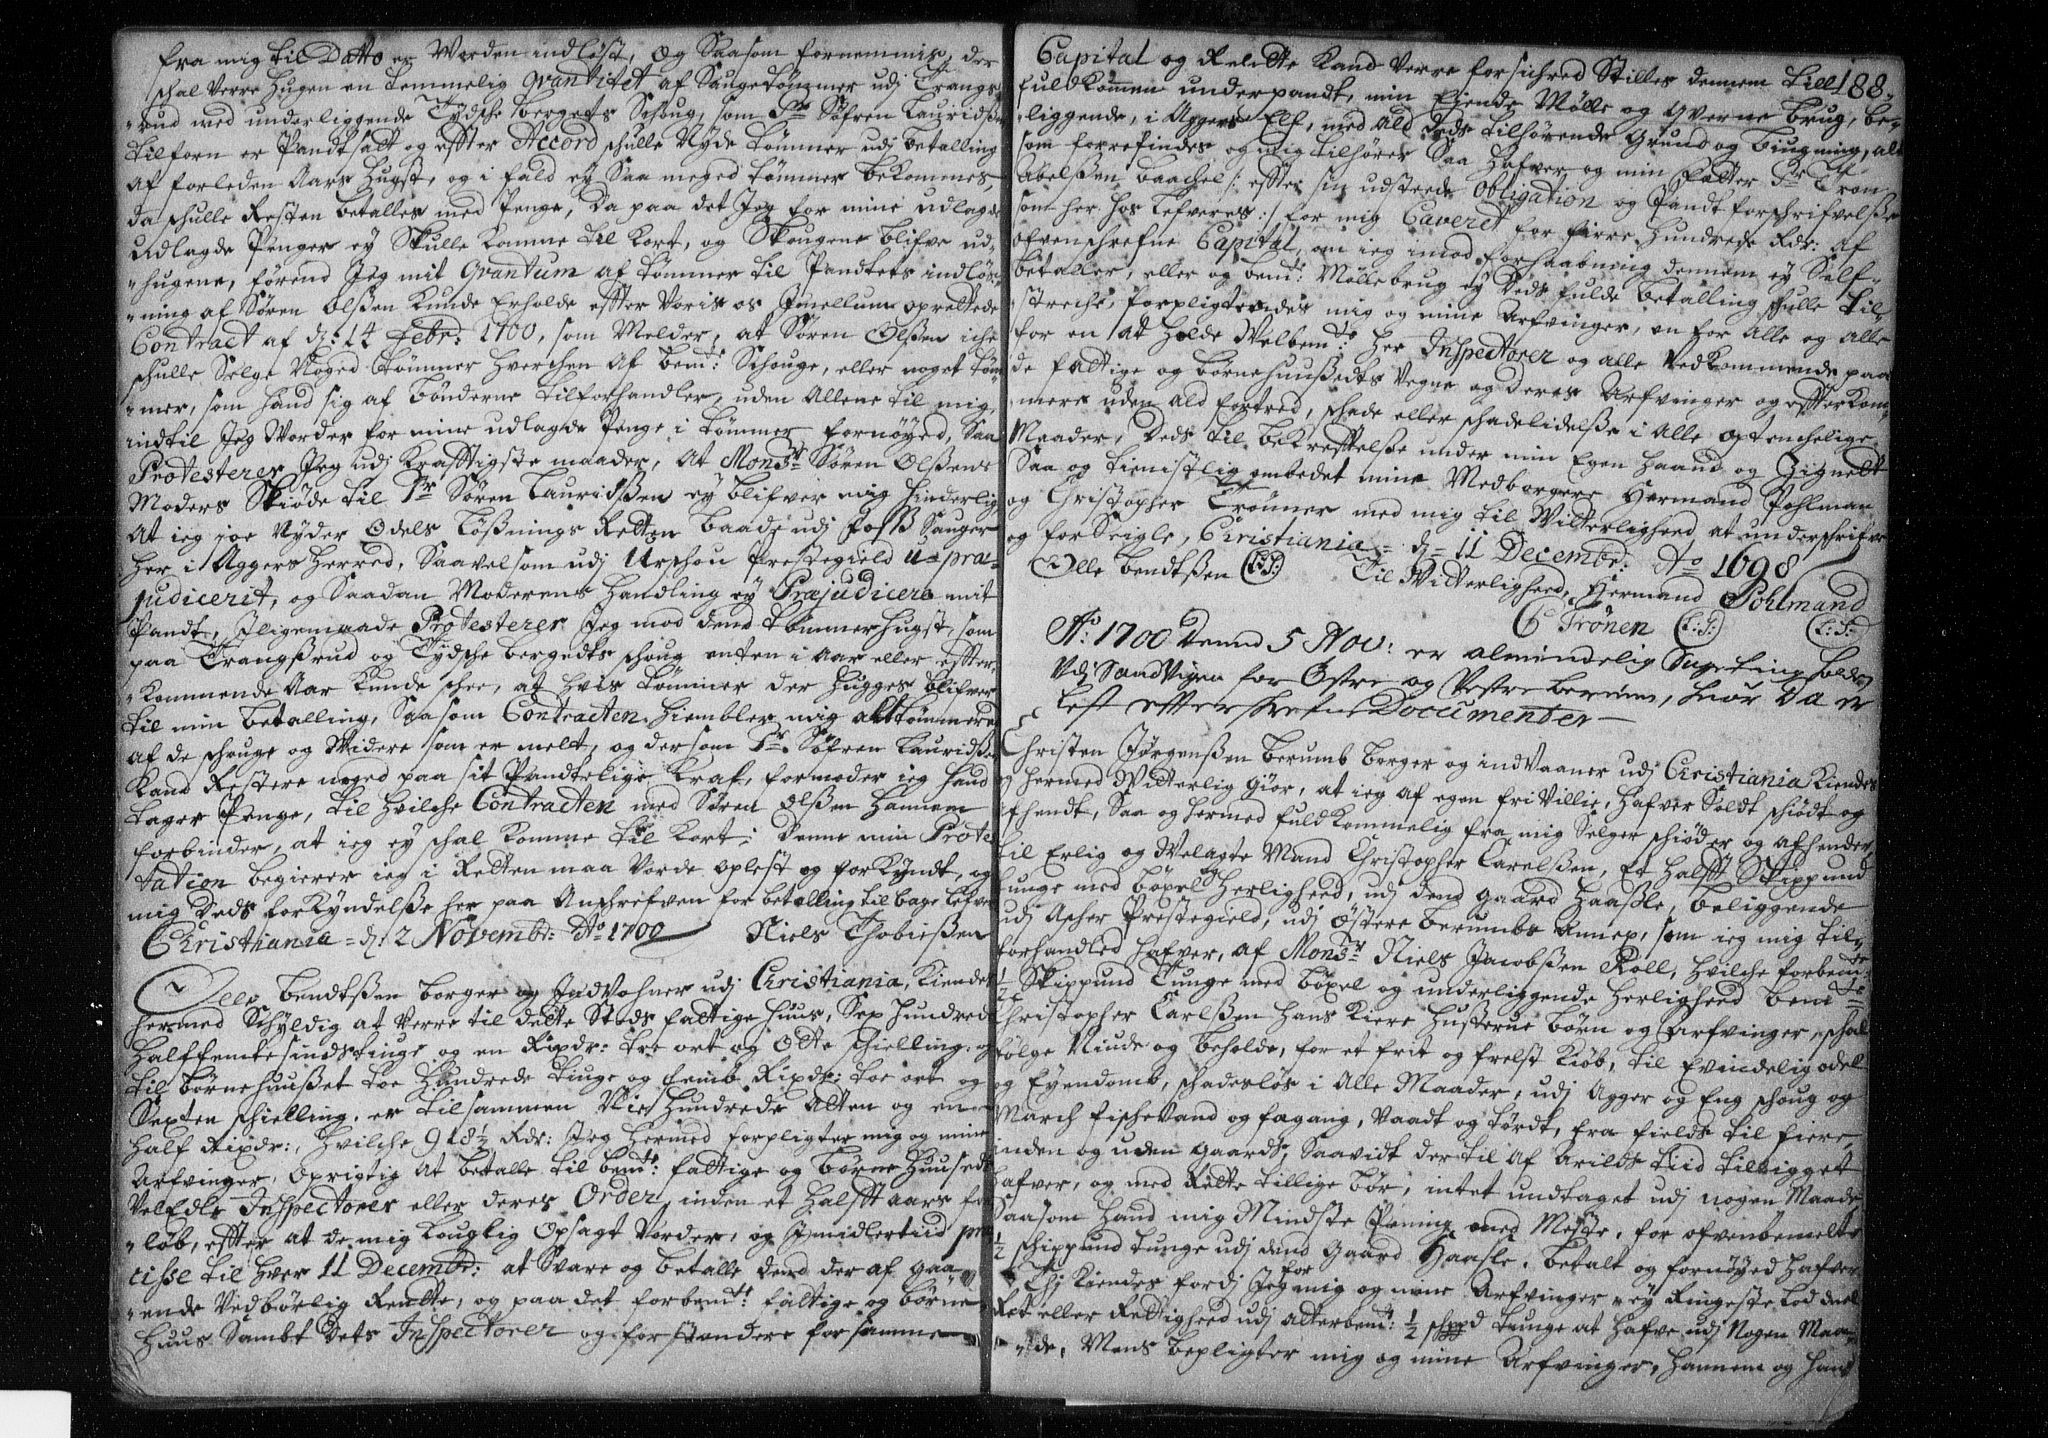 fra mig til Datto er Worden indløst, og Saasom fornemmis, der
schal Verre Hugen en temmelig Qvantitet af Saugetømmer udj Trangs-
-rud med underliggende Tydsche bergets Schoug, som Sr Søfren Lauridsßen
tilforn er Pandtsatt og effter Accord schulle Nyde tømmer udj betalling
af forleden Aars Hugst, og i fald ey Saa meged tømmer bekommes,
da schulle Resten betalles med Penge, Da paa det Jeg for mine udlagde
udlagde Penger ey Skulle Komme til Kort, og Skougene blifve ud-
-hugene, førend Jeg mit Qvantum af tømmer til Pandtets indløs-
-ning af Søren Olßen Kunde Erholde effter Voris os Jmellum oprettede
Contract af d: 14 Febr: 1700, som Melder, at Søren Olßen iche
schulle Selge Noged tømmer hverchen af bemt: Schouge, eller noget tøm-
-mer, som hand sig af bønderne tilforhandler, uden Allene til mig,
indtil Jeg Worder for mine udlagde Penge i tømmer fornøyed, Saa
Protesterer Jeg udj Krafftigste maader, At Monsr Søren Olßens
Moders Skiøde til Sr Søren Lauridßen ey blifver mig hinderlig
At ieg joe Nyder Odels Løßnings Retten baade udj Foß Sauger
her i Aggers Herred, Saavelsom udj Urschou Prestegield u-præ-
judicerit, og Saadan Moderens Handling ey Præjudicere mit
Pandt, Jligemaade Protesterer Jeg mod dend tømmerhugst, som
paa Trangßrud og Tydsche bergedts schoug enten i Aar eller effter-
-Kommende Aar Kunde schee, at hvis tømmer der hugges blifver
til min betalling, Saasom Contracten hiembler mig alt tømmered
af de schouge og Widere som er melt, og dersom Sr. Søfren Lauridßen
Kand Restere noged paa sit Pandtelige Kraf, formoder ieg hand
tager Penge, til hvilche Contracten med Søren Olßen hannem
forbinder, at ieg ey schal Komme til Kort; denne min Protes
tation begierer ieg i Retten maa Vorde oplest og forkyndt, og
mig Deds forkyndelße her paa Anschrefven for betalling tilbage lefver
Christiania d: 2 Novembr: Ao 1700 Niels Thobiesßen
Olle bendtsßen borger og Jndvohner udj Christiania, Kiender
hermed Schyldig at Verre til dette Steds fattige huus, Sex hundrede
halffemtesindstiuge og en Rixdr: tre ort og Otte schielling, og
til børnehuußet toe Hundrede tiuge og femb Rixdr: toe ort og
Sexten schielling, er tilsammen Nie hundrede Atten og en
half Rixdr:, hvilche 918½ Rdr: Jeg hermed forpligter mig og mine
Arfvinger, oprigtig at betalle til bemt: fattige og børne huusedts
VelEdle Inspectorer eller deres Order, inden et halfft aars for
-løb, effter at de mig louglig Opsagt Vorder, og Jmidlertiid præ
cisse til hver 11 Decembr: at Svare og betalle dend der af gaa-
-ende Vedbørlig Rendte, og paa det forbemt: fattige og børne-
huus Sambt dets Inspectorer og forstandere for samme
Capital og Rendte Kand Verre forsichred Stilles dennem till 188.
fuldkommen underpandt, min Ejende Mølle og qverne brug, be-
-liggende, i Aggers Elf, med ald deds tilhørende Grund og biugning, alt
som forrefindes og mig tilhører Saa hafver og min Fatter Sr Tron
Abelsßen baachel /: effter sin udstæde Obligation og Pandtforschrifvelße
som her hos lefveres :/ for mig Caveret for firre hundrede Rdr: af
ofvenschrefne Capital, om ieg imod forhaabning dennem ey Self
betaller, eller og bemt: Møllebrug ey deds fulde betalling schulle til-
-streche, forpligtendes mig og mine Arfvinger, en for Alle og alle
for en at holde Velbemte her Inspectorer og alle Vedkommende paa
de fattige og børnehuusßedts Vegne og deres Arfvinger og effterkom-
mere uden ald fortred, schade eller schadelidelße i Alle optenchelige
Maader, Deds til bekrefftelße under min Egen haand og Zignette
Saa og tienistlig ombedet mine Medborgere Hermand Pohlman
og Christopher Trønner med mig til Witterlighed, at underschrifve
og forseigle, Christiania d 11 Decembr: Ao 1698
Olle bendtsßen (L:S:) Til Witterlighed, Hermand Pohlmand
C Trönen (L:S:) (L:S:)
Ao: 1700 dennd 5 Nov: er almindelig Sageting holden
udj Sandvigen for Østre og Vestre berum, huor da er
lest effterschrefne Documenter
Christen Jørgensßen berumb borger og indVaaner udj Christiania Kiendes
og hermed Witterlig giør, at ieg af egen fri Villie, hafver Soldt schiødt og
afhendt, Saa og hermed fuldkommelig fra mig Selger schiøder og afhender
til Erlig og Welagte Mand Christopher Carelsßen, Et halfft Skippund
tunge med bøxel og herlighed, udj dend gaard Haaßle, beliggende
udj Ascher Prestegield, udj Østere berumbs Annex, som ieg mig til-
forhandled hafver, af Monsr Niels Jacobßen Roll, hvilche forbemte
½ Skippund tunge med bøxel og underliggende herlighed bemte
Christopher Carlsßen hans Kiere hußtrue børn og Arfvinger, schal
følge Niude og beholde, for et frit og frelst Kiøb, til Evindelig odel
og Eyendomb, schadesløs i Alle Maader, udj Agger og Eng schoug og
March fischevand og fægang, Vaadt og tørdt, fra fields til fiere
inden og uden gaards, Saavidt der til af Arilds tiid tilligget
hafver, og med Rette tillige bør, intet undtaget udj nogen Maade
Saasom hand mig Mindste Pening med Meste, for ofvenbemelte
½ schippund tunge udj dend Gaard Haasle, betalt og fornøyed hafver
Thj Kiender fordj Jeg for mig og mine Arfvinger ey Ringeste lod deel
Ret eller Rettighed udj alterbemt: ½ schppd tunge at hafve udj Nogen Maa-
-de, Mens bepligter mig og mine Arfvinger, hannem og hans